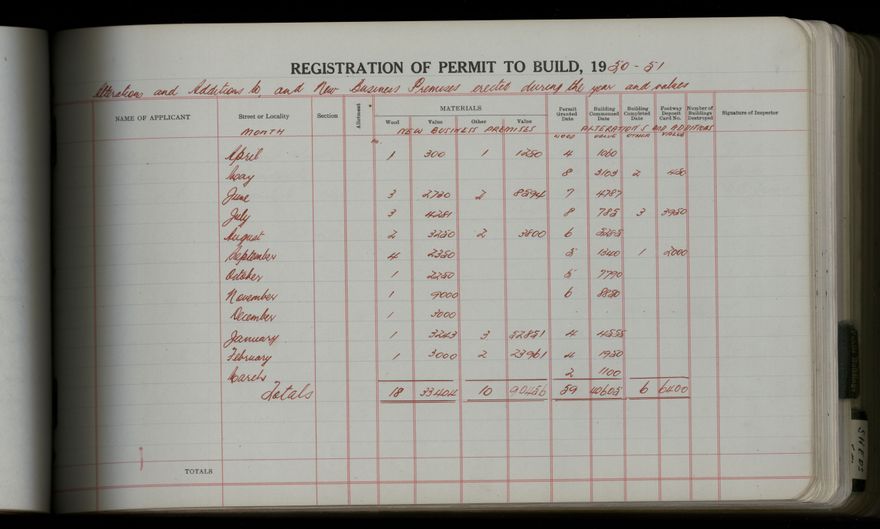 REGISTRATION OF PERMIT TO BUILD, 1950-51
Alterations and Additions to, and New Business Premises erected during the year and values
NAME OF APPLICANT Street or Locality Section Allotment MATERIALS Permit Granted Date Building Commenced Date Building Completed Date Footway Deposit Card No. Number of Buildings Destroyed Signature of Inspector
Wool Value Other Value
MONTH NEW BUSINESS PREMISES ALTERATIONS AND ADDITIONS
No. WOOD VALUE OTHER VALUE
April 1 300 1 1250 4 1060
May 8 3103 2 450
June 3 2730 2 8594 7 4787
July 3 4281 8 785 3 3950
August 2 3250 2 3800 6
September 4 2350 5 1340 1 2000
October 1 2250 5 7790
November 1 9000 6 8850
December 1 3000
January 1 3243 3 52851 4 4555
February 1 3000 2 23961 4 1950
March 2 1100
Totals 18 33404 10 90456 59 40605 6 6400
TOTALS
SHEDS